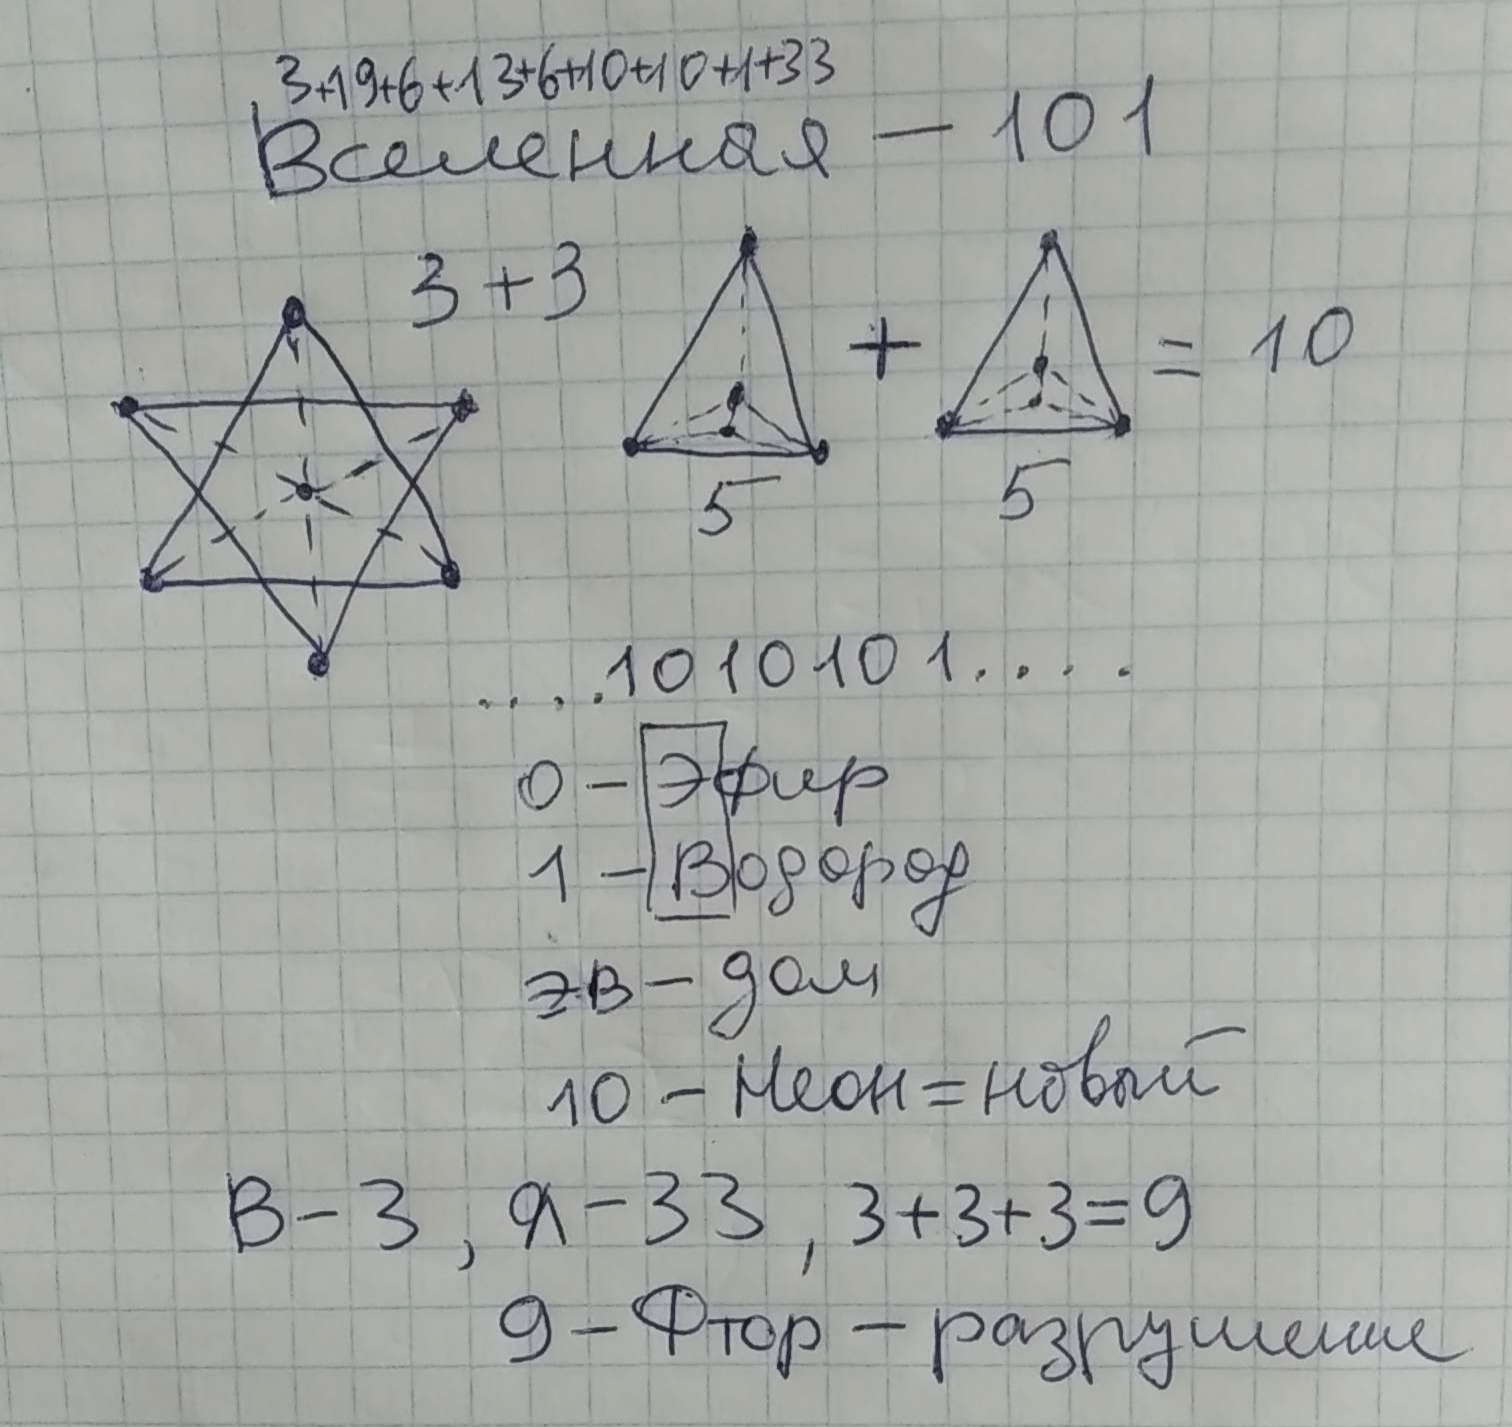 3+19+6+13+6+10+10+1+33
Вселенная - 101
3+3
+ = 10
5 5
....1010101....
0 - Эфир
1 - Водород
ЭВ - дом
10 - Неон = новый
В-3, Я-33, 3+3+3=9
9 - Фтор - разрушение